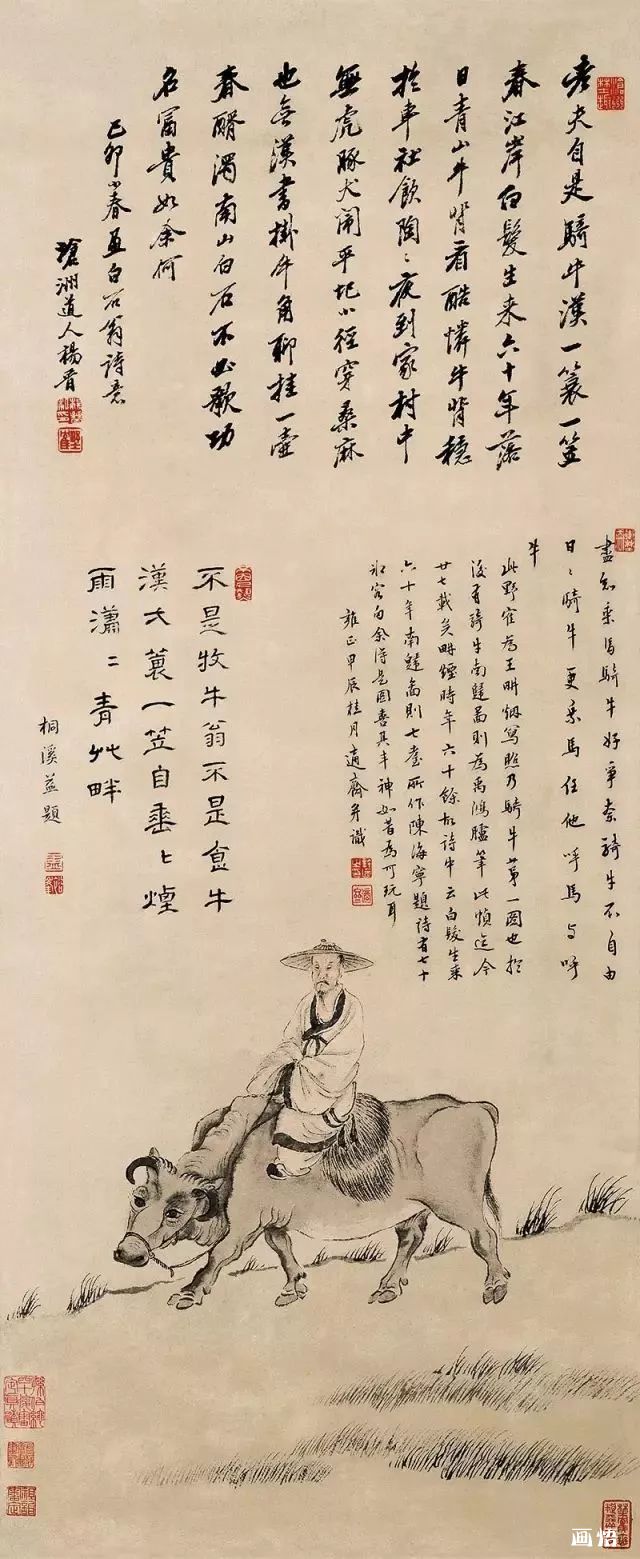 老夫自是騎牛漢一簑一笠
春江岸白髮生来六十年落
日青山牛背看酷憐牛背穩
於車社飲陶〻夜到家村中
無虎豚犬鬧平圯小徑穿桑麻
也無漢書掛牛角聊挂一壺
春醑濁南山白石不必歌功
名富貴如余何
己卯小春畫白石翁詩意
滄洲道人楊晉
盡知乘馬騎牛好爭奈騎牛不自由
日〻騎牛更乘馬任他呼馬与呼
牛
此野崔為王畊烟寫照乃騎牛第一圖也於
後有騎牛南歸圖則為禹鴻臚筆此幀迄今
廿七載矣畊煙時年六十餘故詩中云白髮生来
六十年南歸圖則七耋所作陳海寧題詩有七十
客向余得是圖喜其丰神如昔為可玩耳
雍正甲辰桂月適齋并識
不是牧牛翁不是食牛
漢大蓑一笠自垂〻煙
雨瀟〻青艸畔
桐溪益題
画悟